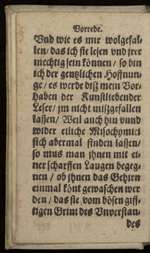 Vorrede.
Vnd wie es mir wolgefal-
len/ das ich sie lesen vnd jrer
mechtig sein können / so bin
ich der gentzlichen Hoffnun-
ge / es werde diß mein Vor-
haben der Kunstliebender
Leser/ jm nicht mißgefallen
lassen/ Weil auch hin vnnd
wider etliche Misochymici
sich abermal finden lassen/
so mus man jhnen mit ei-
ner scharffen Laugen begeg-
nen / ob jhnen das Gehirn
einmal könt gewaschen wer
den / das sie vom bösen giff-
tigen Grim des Vnverstan-
des